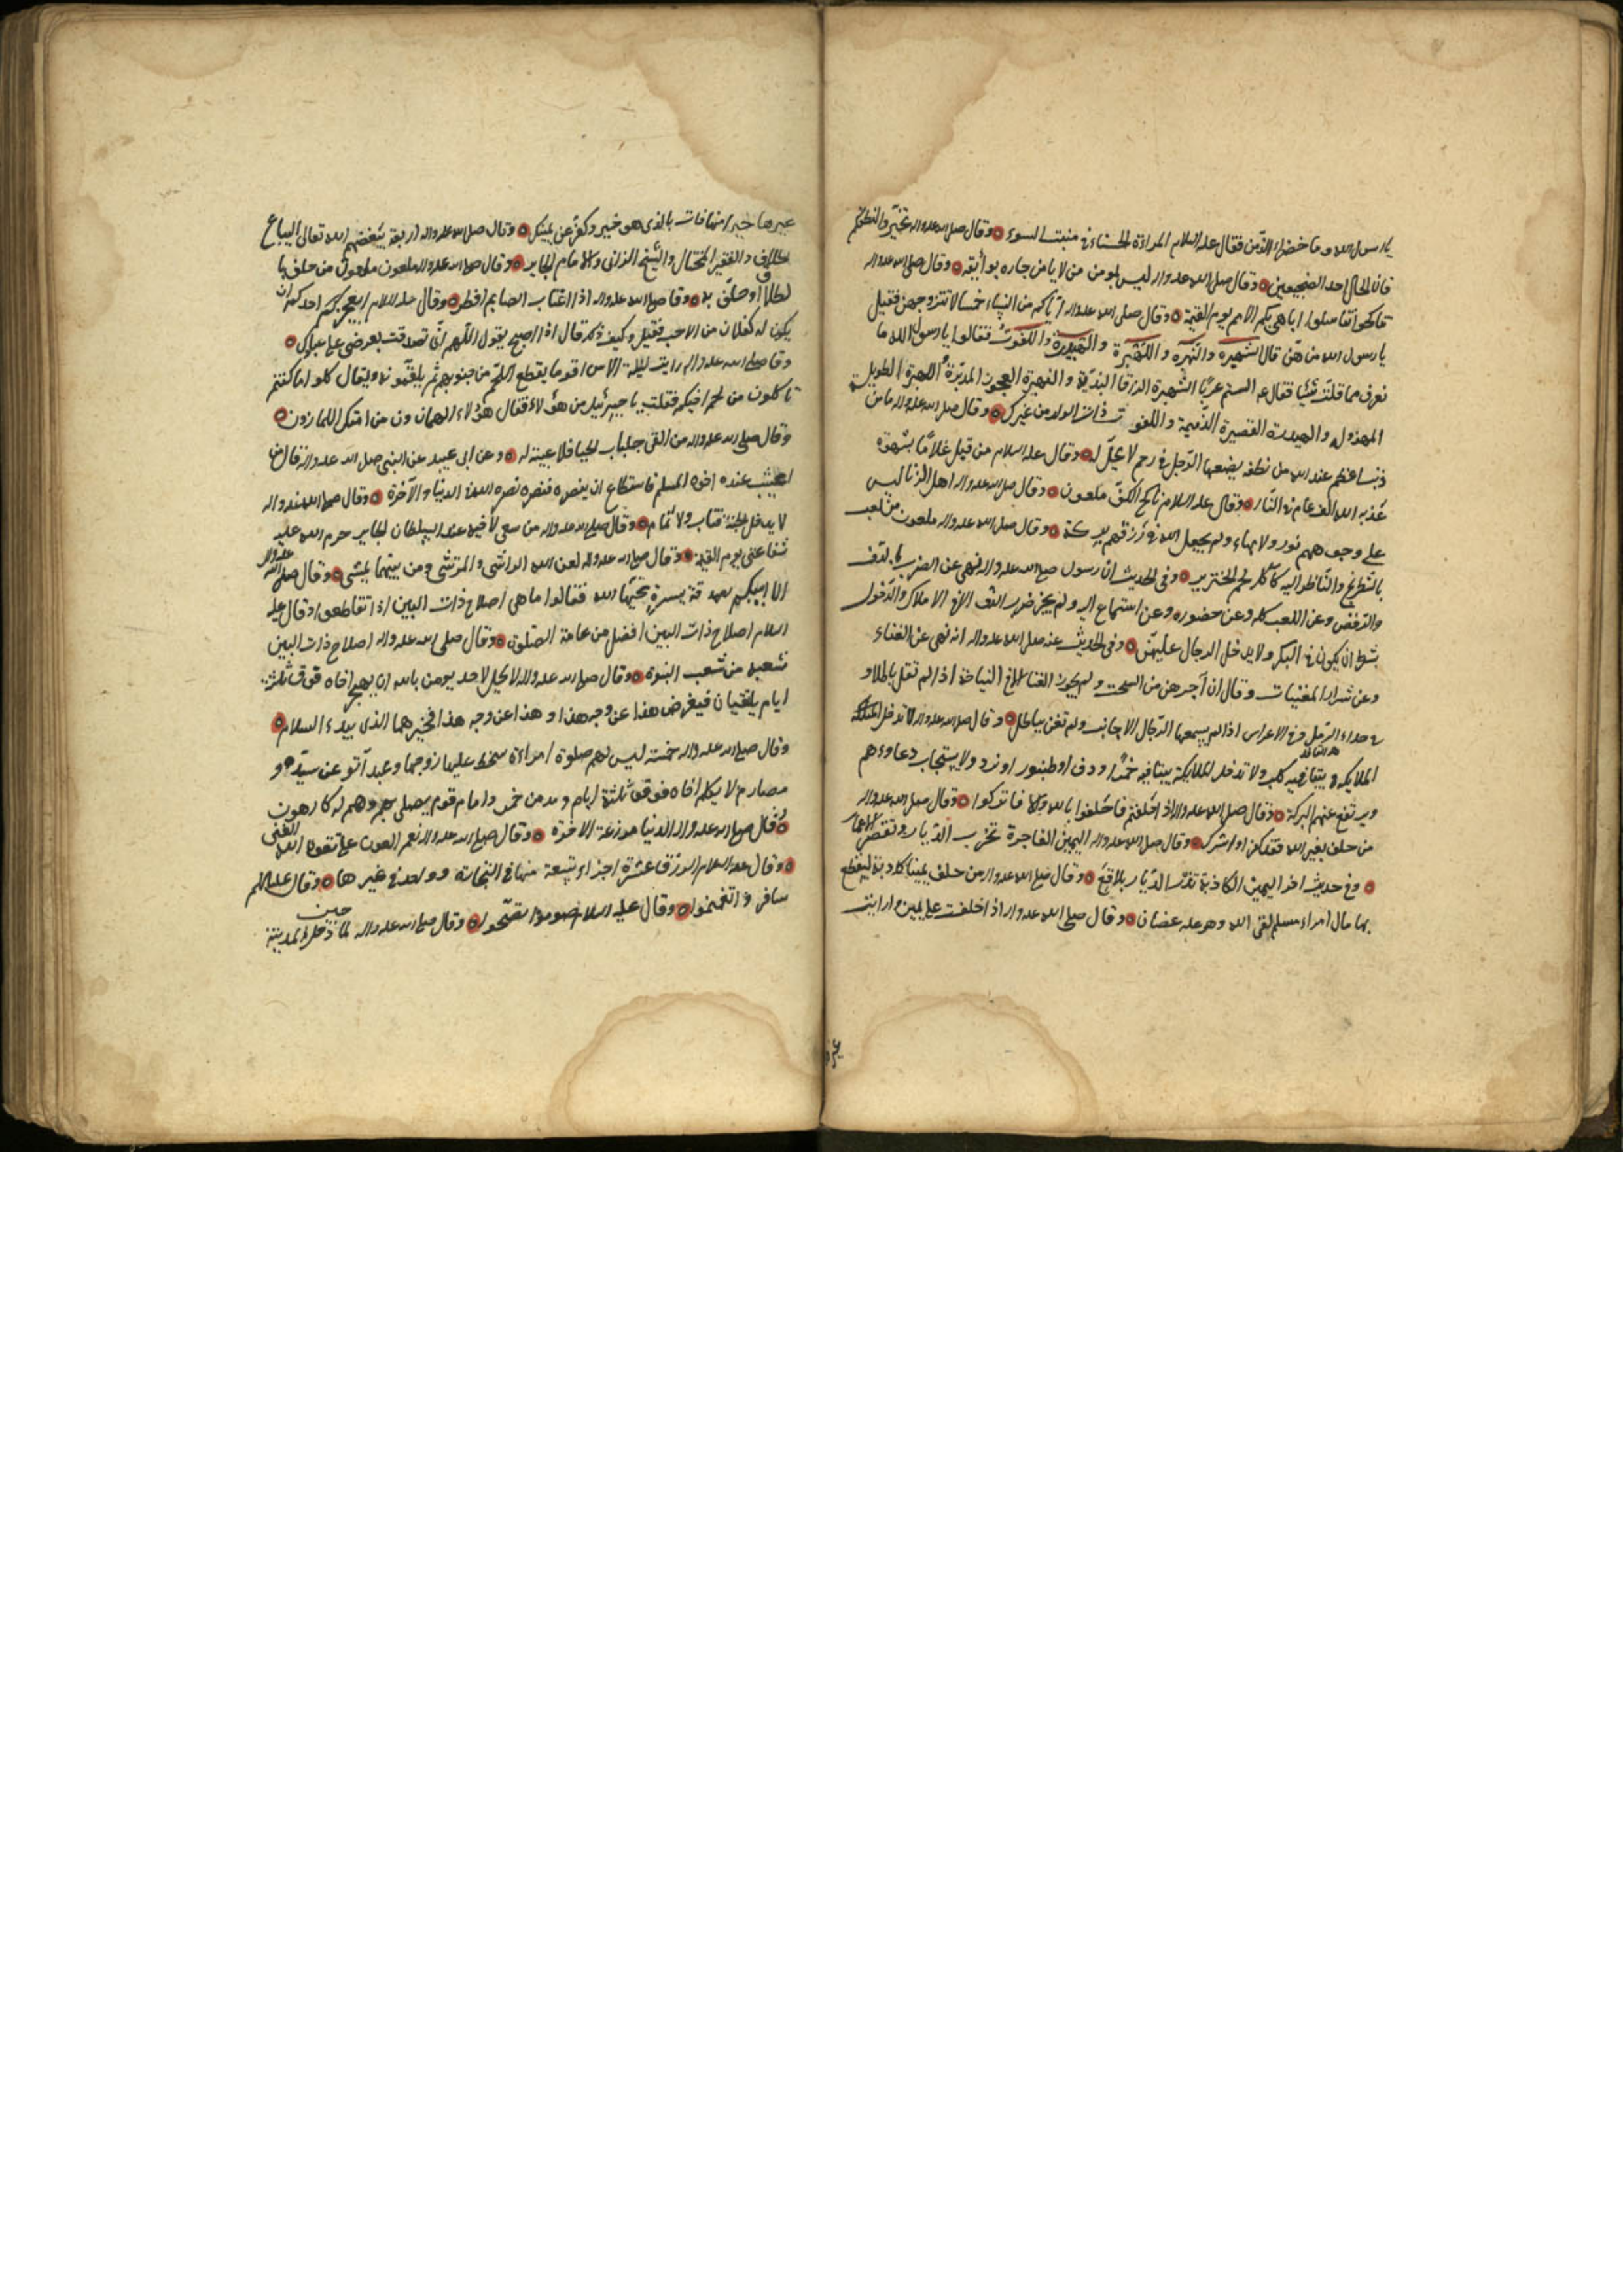 يا رسول الله وما خضراء الدّمن فقال عليه السلام المراءة الحسناء في منبت السوء وقال صلى الله عليه واله تخيّروا لنطفكم
فان الخال احد الضجيعين وقال صلى الله عليه واله ليس بمومن من لا يامن جاره بوائقه وقال صلى الله عليه واله
تناكحوا تناسلوا اباهي بكم الامم يوم القيمة وقال صلى الله عليه واله اياكم من النساء خمسا لا تتزوجهن فقيل
يا رسول الله من هنّ قال الشهبره والنهبره واللهبرة والهيدرة واللفوت فقالوا يا رسول الله ما
نعرف مما قلت شيئا فقال عم الستم عربًا الشهبرة الزرقا البذيّة والنهبرة العجوز المدبرة واللهبرة الطويلة
المهذوله والهيدرة القصيرة الذّميمة واللفوت ذات الولد من غيرك وقال صلى الله عليه واله ما من
ذنب اعظم عند الله من نطفه يضعها الرّجل في رحم لا يحلّ له وقال عليه السلام من قبل غلامًا بشهوة
عذبه الله الف عام في النّار وقال عليه السلام ناكح الكفّ ملعون وقال صلى الله عليه واله اهل الزنا ليس
على وجوههم نور ولا بهاء ولم يجعل الله في رزقهم بركة وقال صلى الله عليه واله ملعون من لعب
بالشطرنج والنّاظر اليه كآكل لحم الخنزير وفي الحديث ان رسول صلى الله عليه واله نهى عن الضرب بالدّف
والرّقص وعن اللعب كله وعن حضوره وعن استماع اليه ولم يجز ضرب الدف الا في الاملاك والدّخول
بشرط ان يكون في البكر ولا يدخل الرجال عليهنّ وفي الحديث عنه صلى الله عليه واله انه نهى عن الغناء
وعن شراء المغنيات وقال ان اجرهن من السحت ولم يجوز الغنا الا في النياحة اذا لم تقل باطلا و
في حداء الزمل وفي الاعراس اذا لم يسمعها الرّجال الاجانب ولم تغن بباطل وقال صلى الله عليه واله لا تدخل
الملايكة بيتا فيه كلب ولا تدخل الملايكة بيتا فيه خمر او دف او طنبور او نرد ولا يستجاب دعاوءهم
ويرتفع عنهم البركة وقال صلى الله عليه واله اذا حلفتم فاحلفوا بالله والا فاتركوا وقال صلى الله عليه واله
من حلف بغير الله فقد كفر او اشرك وقال صلى الله عليه واله اليمين الفاجرة تخرب الدّيار وتقصر الاعمار
وفي حديث اخر اليمين الكاذبة تذر الدّيار بلاقع وقال صلى الله عليه واله من حلف يمينا كاذبة ليقطع
بها مال امراء مسلم لقى الله وهو عليه غضبان وقال صلى الله عليه واله اذا حلفت على يمين ورايت
غيرها خيرا منها فات بالذى هو خير وكفر عن يمينك وقال صلى الله عليه واله اربعة يبغضهم الله تعالى البياع
الحلاف والفقير المختال والشيخ الزانى والامام الجاير وقال صلى الله عليه واله ملعون ملعون من حلف با
لطلاق او حلّف به وقا صلى الله عليه واله اذا اغتاب الصايم افطر وقال عليه السلام ايعجز احدكم ان
يكون له كفلان من الاجر فقيل وكيف ذلك قال اذا اصبح يقول اللهم انّى تصدقت بعرضى على عبادك
وقا صلى الله عليه واله رايت ليلة الاسراء قوما يقطع اللحم من جنوبهم ثم يلقّمونه ويقال كلوا ما كنتم
تاكلون من لحم اخيكم فقلت يا جبرئيل من هؤلاء فقال هؤلاء الهمازون من امتك اللمازون
وقال صلى الله عليه واله من القى جلباب الحيا فلا غيبة له وعن ابى عبيد عن النبى صلى الله عليه واله قال من
اغتيب عنده اخوه المسلم فاستطاع ان ينصره فنصره نصره الله في الدنيا والآخرة وقال صلى الله عليه واله
لا يدخل الجنة مغتاب ولا نمام وقال صلى الله عليه واله من سعى لاخيه عند السلطان الجاير حرم الله عليه
شفاعتى يوم القيمة وقال صلى الله عليه واله لعن الله الراشى والمرتشى ومن بينهما يمشى وقال صلى الله عليه واله
الا انبيكم بصدقة يسيرة يحبّها الله فقالوا ما هى اصلاح ذات البين اذا تقاطعوا وقال عليه
السلام اصلاح ذات البين افضل من عامة الصّلوة وقال صلى الله عليه واله اصلاح ذات البين
شعبه من شعب النبوة وقال صلى الله عليه واله لا يحل لاحد يومن بالله ان يهجر اخاه فوق ثلثة
ايام يلتقيان فيعرض هذا عن وجه هذا وهذا عن وجه هذا فخيرهما الذى يبدء السلام
وقال صلى الله عليه واله خمسة ليس لهم صلوة امراءة سخط عليها زوجها وعبد آبق عن سيّده و
مصارم لا يكلم اخاه فوق ثلثة ايام ومدمن خمر وامام قوم يصلى بهم وهم له كارهون
وقال صلى الله عليه واله الدنيا مزرعة الاخرة وقال صلى الله عليه واله نعم العون على تقوى الله الغنى
وقال عليه السلام الرزق عشرة اجزاء تسعة منها في التجارة وواحد في غيرها وقال عليه السلم
سافروا تغنموا وقال عليه السلام صوموا تصحّوا وقال صلى الله عليه واله لما دخل المدينة
حين